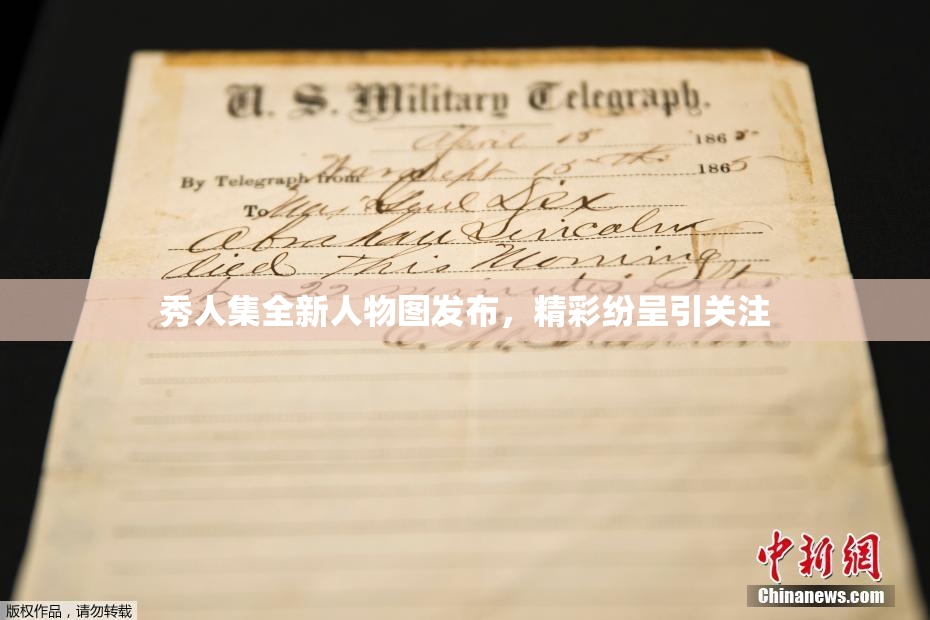 U. S. Military Telegraph.
April 15 1865
By Telegraph from War Dept 15th 1865
To Maj Genl Dix
Abraham Lincoln
died This Morning
at 22 minutes after
秀人集全新人物图发布，精彩纷呈引关注
中新网
Chinanews.com
版权作品，请勿转载